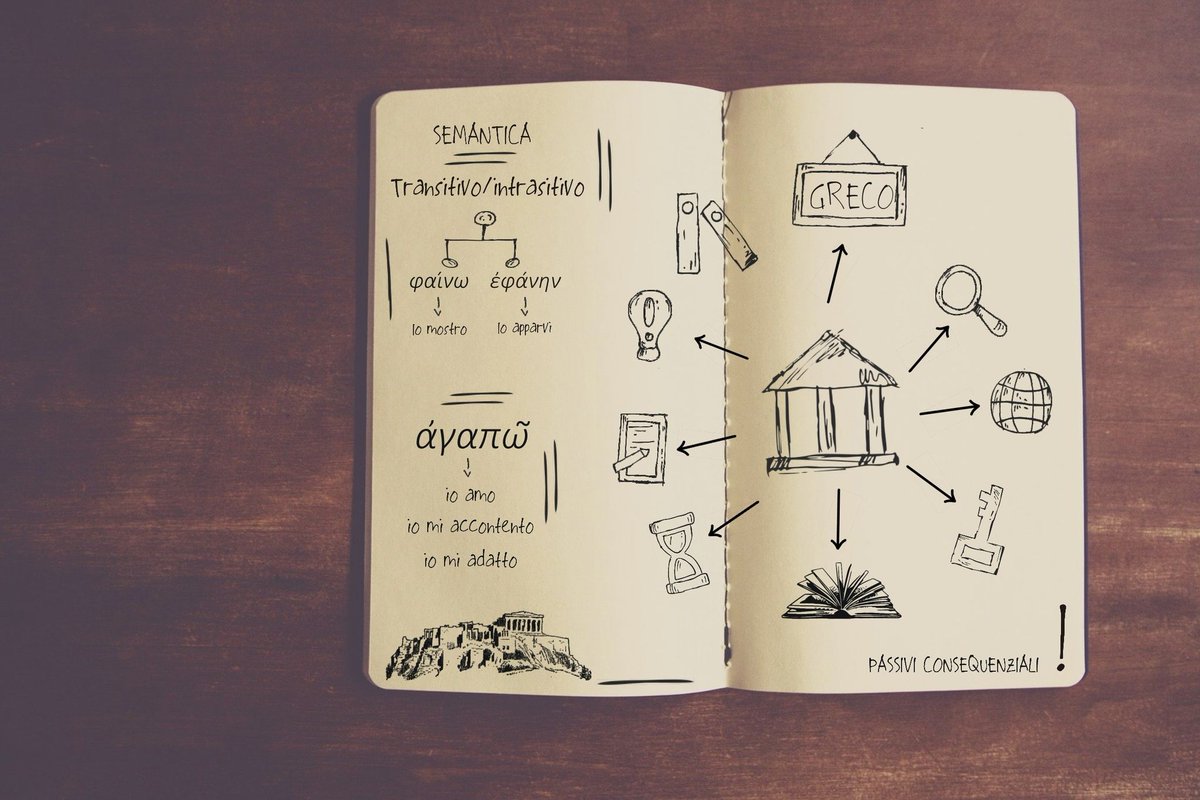 SEMANTICA
Transitivo/intrasitivo
φαίνω ἐφάνην
Io mostro Io apparvi
ἀγαπῶ
io amo
io mi accontento
io mi adatto
GRECO
PASSIVI CONSEQUENZIALI !